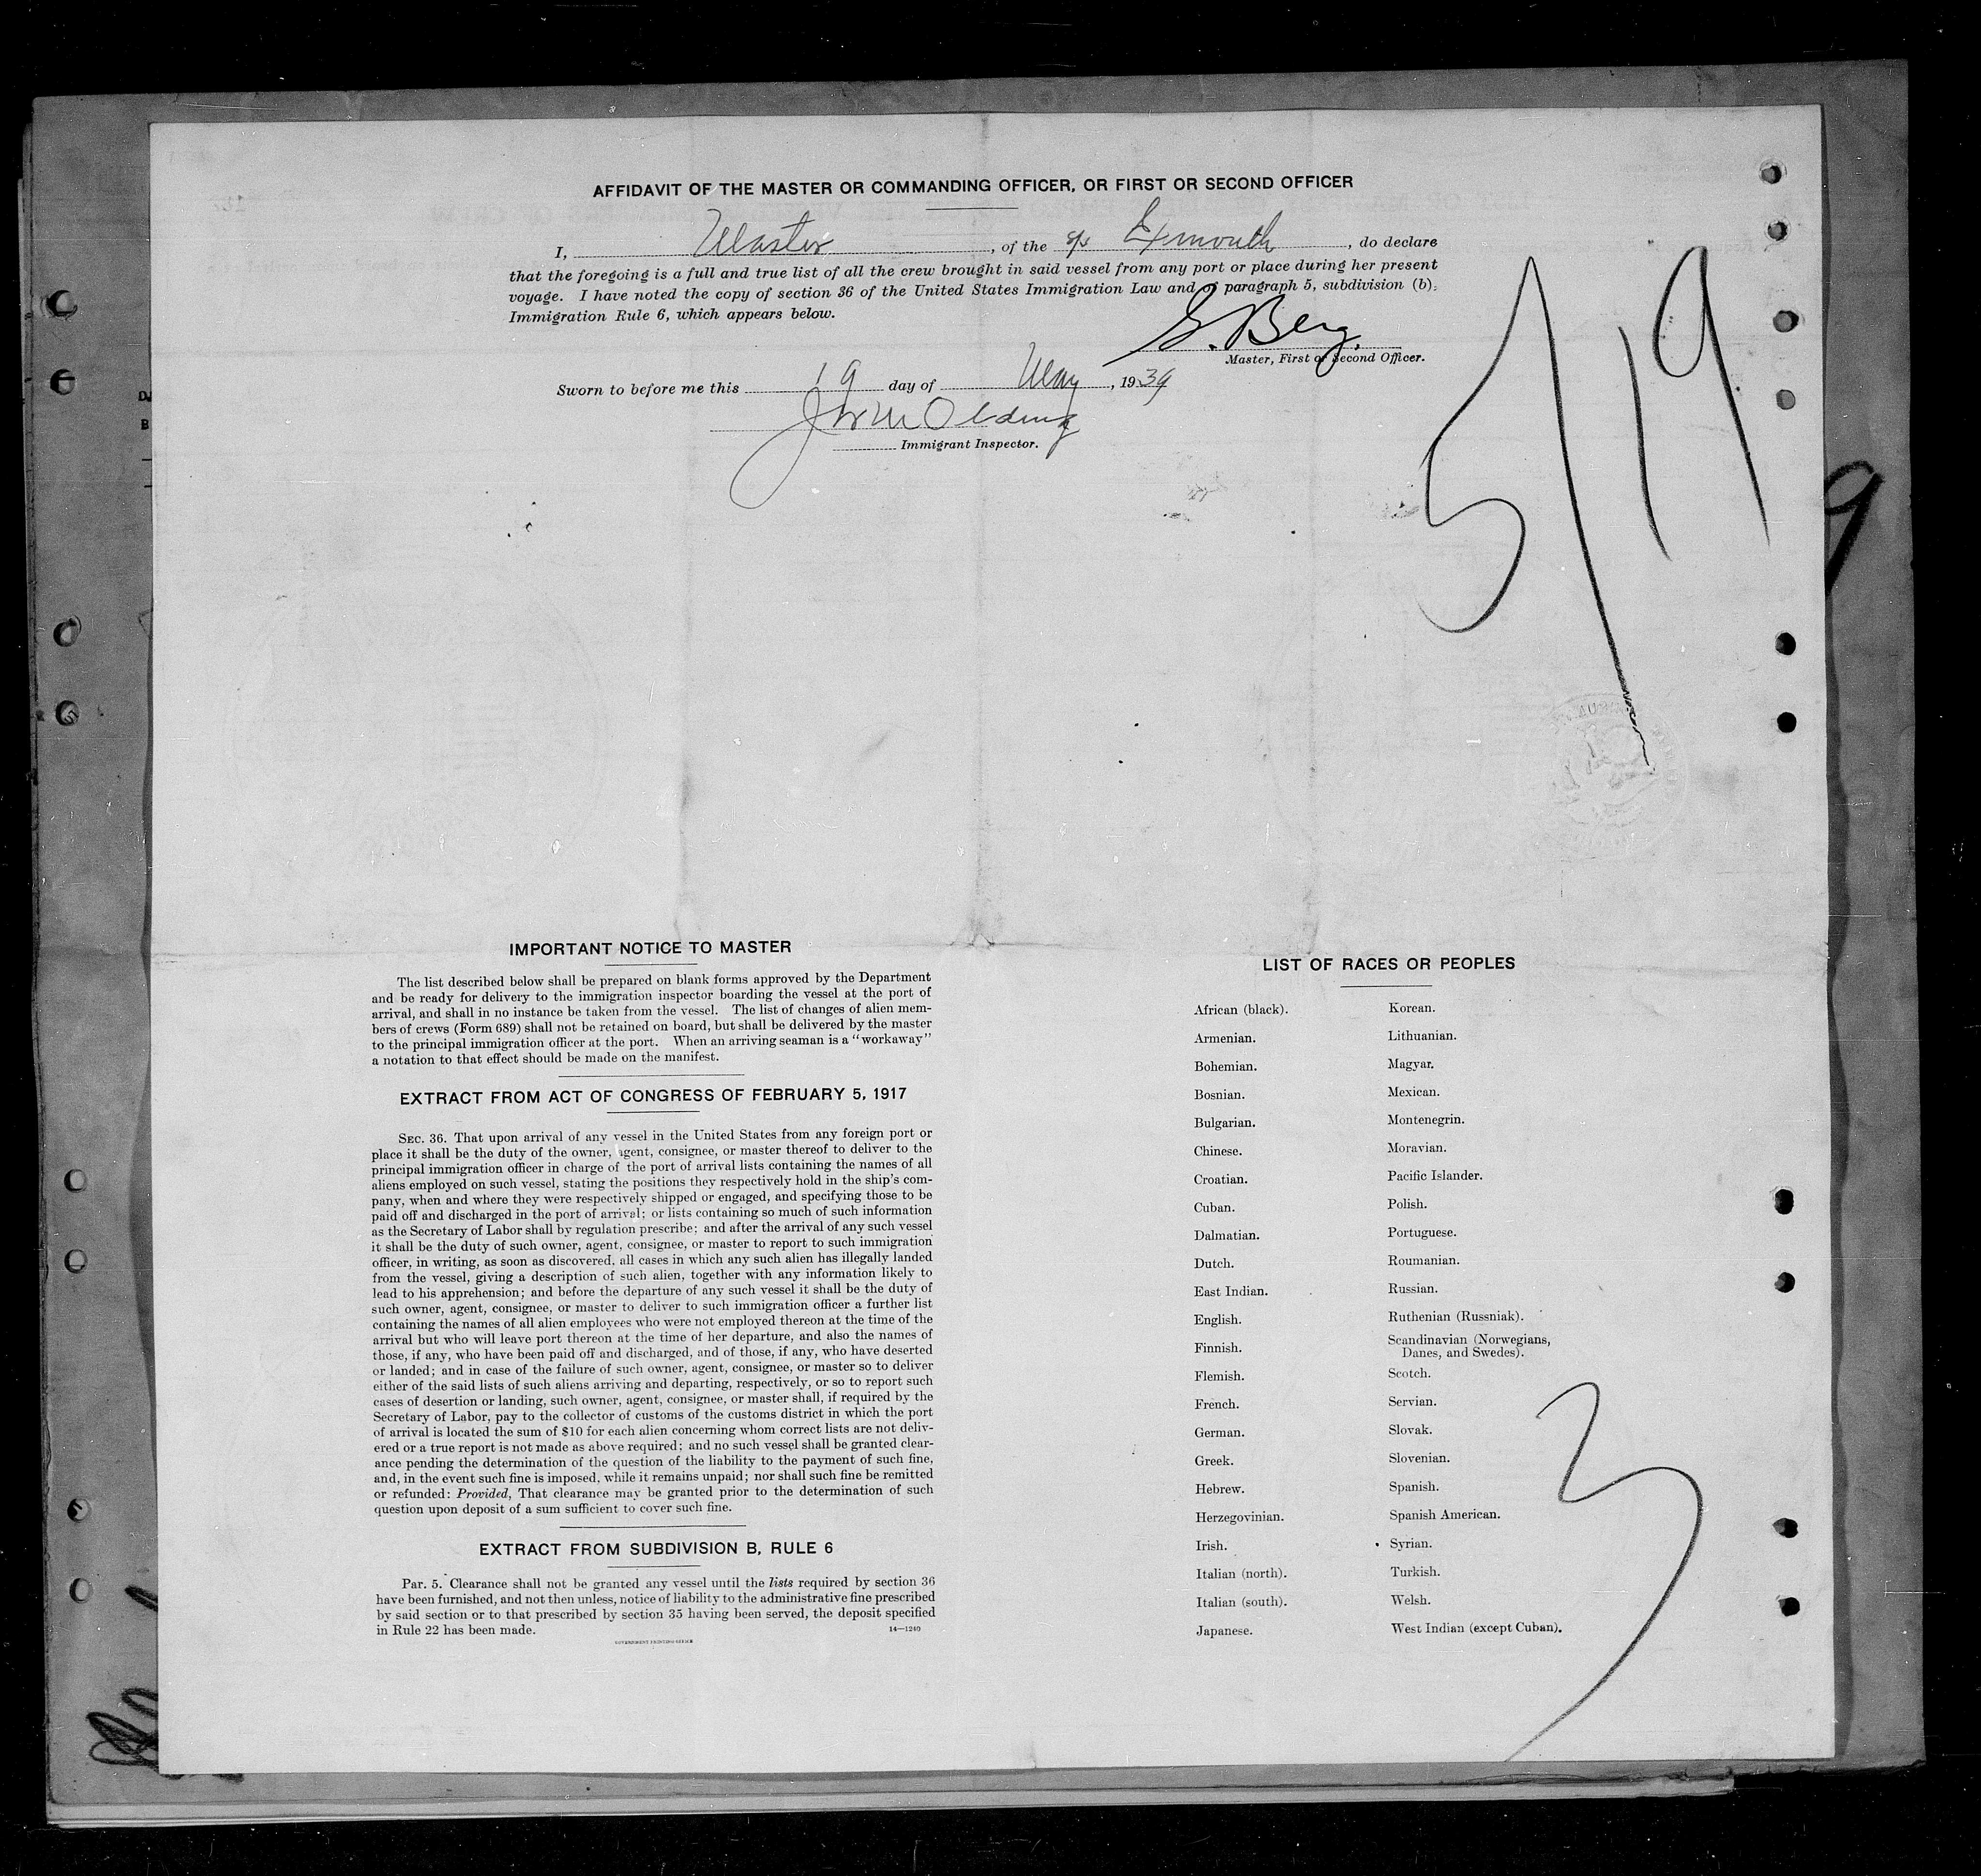 AFFIDAVIT OF THE MASTER OR COMMANDING OFFICER, OR FIRST OR SECOND OFFICER
I, Master, of the S/S Exmouth, do declare
that the foregoing is a full and true list of all the crew brought in said vessel from any port or place during her present
voyage. I have noted the copy of section 36 of the United States Immigration Law and of paragraph 5, subdivision (b),
Immigration Rule 6, which appears below.
G. Berg.
Master, First or Second Officer.
Sworn to before me this 19 day of May, 1939
Immigrant Inspector.
5/19
9
IMPORTANT NOTICE TO MASTER
The list described below shall be prepared on blank forms approved by the Department
and be ready for delivery to the immigration inspector boarding the vessel at the port of
arrival, and shall in no instance be taken from the vessel. The list of changes of alien mem-
bers of crews (Form 689) shall not be retained on board, but shall be delivered by the master
to the principal immigration officer at the port. When an arriving seaman is a "workaway"
a notation to that effect should be made on the manifest.
EXTRACT FROM ACT OF CONGRESS OF FEBRUARY 5, 1917
SEC. 36. That upon arrival of any vessel in the United States from any foreign port or
place it shall be the duty of the owner, agent, consignee, or master thereof to deliver to the
principal immigration officer in charge of the port of arrival lists containing the names of all
aliens employed on such vessel, stating the positions they respectively hold in the ship's com-
pany, when and where they were respectively shipped or engaged, and specifying those to be
paid off and discharged in the port of arrival; or lists containing so much of such information
as the Secretary of Labor shall by regulation prescribe; and after the arrival of any such vessel
it shall be the duty of such owner, agent, consignee, or master to report to such immigration
officer, in writing, as soon as discovered, all cases in which any such alien has illegally landed
from the vessel, giving a description of such alien, together with any information likely to
lead to his apprehension; and before the departure of any such vessel it shall be the duty of
such owner, agent, consignee, or master to deliver to such immigration officer a further list
containing the names of all alien employees who were not employed thereon at the time of the
arrival but who will leave port thereon at the time of her departure, and also the names of
those, if any, who have been paid off and discharged, and of those, if any, who have deserted
or landed; and in case of the failure of such owner, agent, consignee, or master so to deliver
either of the said lists of such aliens arriving and departing, respectively, or so to report such
cases of desertion or landing, such owner, agent, consignee, or master shall, if required by the
Secretary of Labor, pay to the collector of customs of the customs district in which the port
of arrival is located the sum of $10 for each alien concerning whom correct lists are not deliv-
ered or a true report is not made as above required; and no such vessel shall be granted clear-
ance pending the determination of the question of the liability to the payment of such fine,
and, in the event such fine is imposed, while it remains unpaid; nor shall such fine be remitted
or refunded: Provided, That clearance may be granted prior to the determination of such
question upon deposit of a sum sufficient to cover such fine.
EXTRACT FROM SUBDIVISION B, RULE 6
Par. 5. Clearance shall not be granted any vessel until the lists required by section 36
have been furnished, and not then unless, notice of liability to the administrative fine prescribed
by said section or to that prescribed by section 35 having been served, the deposit specified
in Rule 22 has been made. 14—1240
GOVERNMENT PRINTING OFFICE
LIST OF RACES OR PEOPLES
African (black).
Armenian.
Bohemian.
Bosnian.
Bulgarian.
Chinese.
Croatian.
Cuban.
Dalmatian.
Dutch.
East Indian.
English.
Finnish.
Flemish.
French.
German.
Greek.
Hebrew.
Herzegovinian.
Irish.
Italian (north).
Italian (south).
Japanese.
Korean.
Lithuanian.
Magyar.
Mexican.
Montenegrin.
Moravian.
Pacific Islander.
Polish.
Portuguese.
Roumanian.
Russian.
Ruthenian (Russniak).
Scandinavian (Norwegians,
Danes, and Swedes).
Scotch.
Servian.
Slovak.
Slovenian.
Spanish.
Spanish American.
Syrian.
Turkish.
Welsh.
West Indian (except Cuban).
3